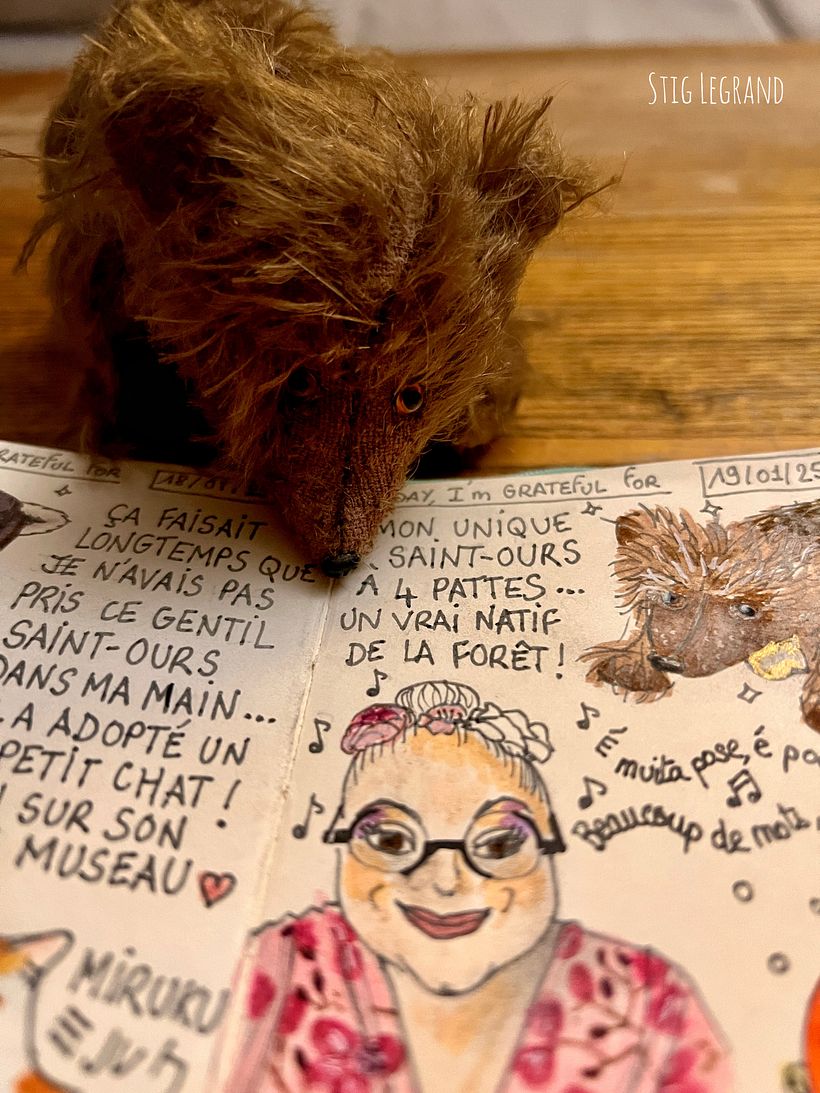 Stig Legrand
GRATEFUL FOR
DAY, I'm GRATEFUL FOR
19/01/25
ÇA FAISAIT
LONGTEMPS QUE
JE N'AVAIS PAS
PRIS CE GENTIL
SAINT-OURS
DANS MA MAIN...
A ADOPTÉ UN
PETIT CHAT!
SUR SON
MUSEAU
MIRUKU
MON UNIQUE
SAINT-OURS
À 4 PATTES...
UN VRAI NATIF
DE LA FORÊT!
É muita pose, é
Beaucoup de mots